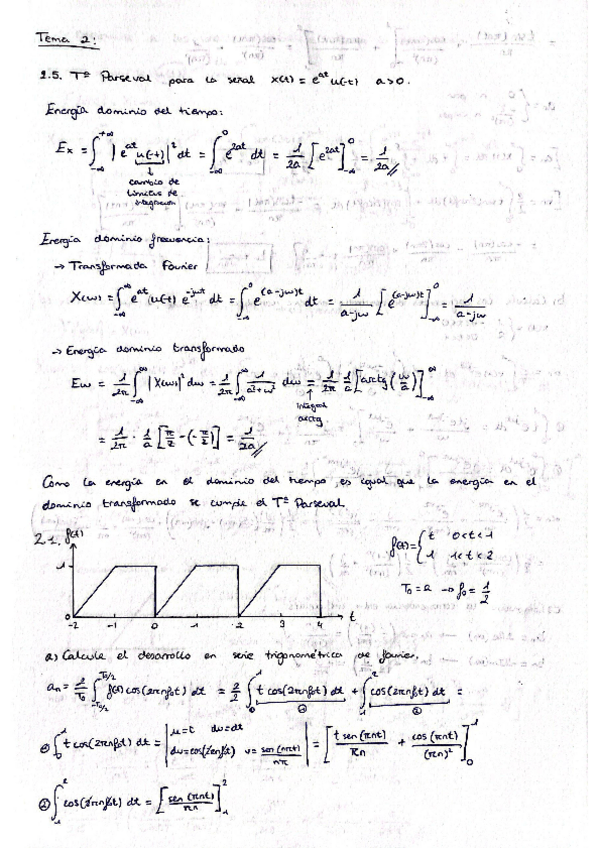 Tema 2:
2.5. Tª Parseval para la señal x(t) = e^{at} u(-t)   a>0.
Energía dominio del tiempo:
Ex = ∫_{-∞}^{+∞} |e^{at} u(-t)|² dt = ∫_{-∞}^{0} e^{2at} dt = 1/2a [e^{2at}]_{-∞}^{0} = 1/2a //
↓
cambio de
límites de
integración
Energía dominio frecuencia:
→ Transformada Fourier
X(ω) = ∫_{-∞}^{∞} e^{at} u(-t) e^{-jωt} dt = ∫_{-∞}^{0} e^{(a-jω)t} dt = 1/(a-jω) [e^{(a-jω)t}]_{-∞}^{0} = 1/(a-jω)
→ Energía dominio transformado
Eω = 1/2π ∫_{-∞}^{∞} |X(ω)|² dω = 1/2π ∫_{-∞}^{∞} 1/(a²+ω²) dω = 1/2π 1/a [arctg(ω/a)]_{-∞}^{∞}
↑
integral
arctg
= 1/2π · 1/a [π/2 - (-π/2)] = 1/2a //
Como la energía en el dominio del tiempo, es igual que la energía en el
dominio transformado se cumple el Tª Parseval.
2.1. f(t)
f(t) = { t   0<t<1
1   1<t<2
T₀ = 2 → f₀ = 1/2
1
0
-2 -1 0 1 2 3 4 t
a) Calcule el desarrollo en serie trigonométrica de fourier.
an = 2/T₀ ∫_{-T₀/2}^{-T₀/2} f(t) cos(2πnf₀t) dt = 2/2 ∫_{0}^{1} t cos(2πnf₀t) dt + ∫_{1}^{2} cos(2πnf₀t) dt =
① ②
① ∫_{0}^{1} t cos(2πnf₀t) dt = | u=t   du=dt
dv=cos(2πnf₀t)   v= sen(nπt)/nπ | = [t sen(πnt)/πn + cos(πnt)/(πn)²]_{0}^{1}
② ∫_{1}^{2} cos(2πnf₀t) dt = [sen(πnt)/πn]_{1}^{2}